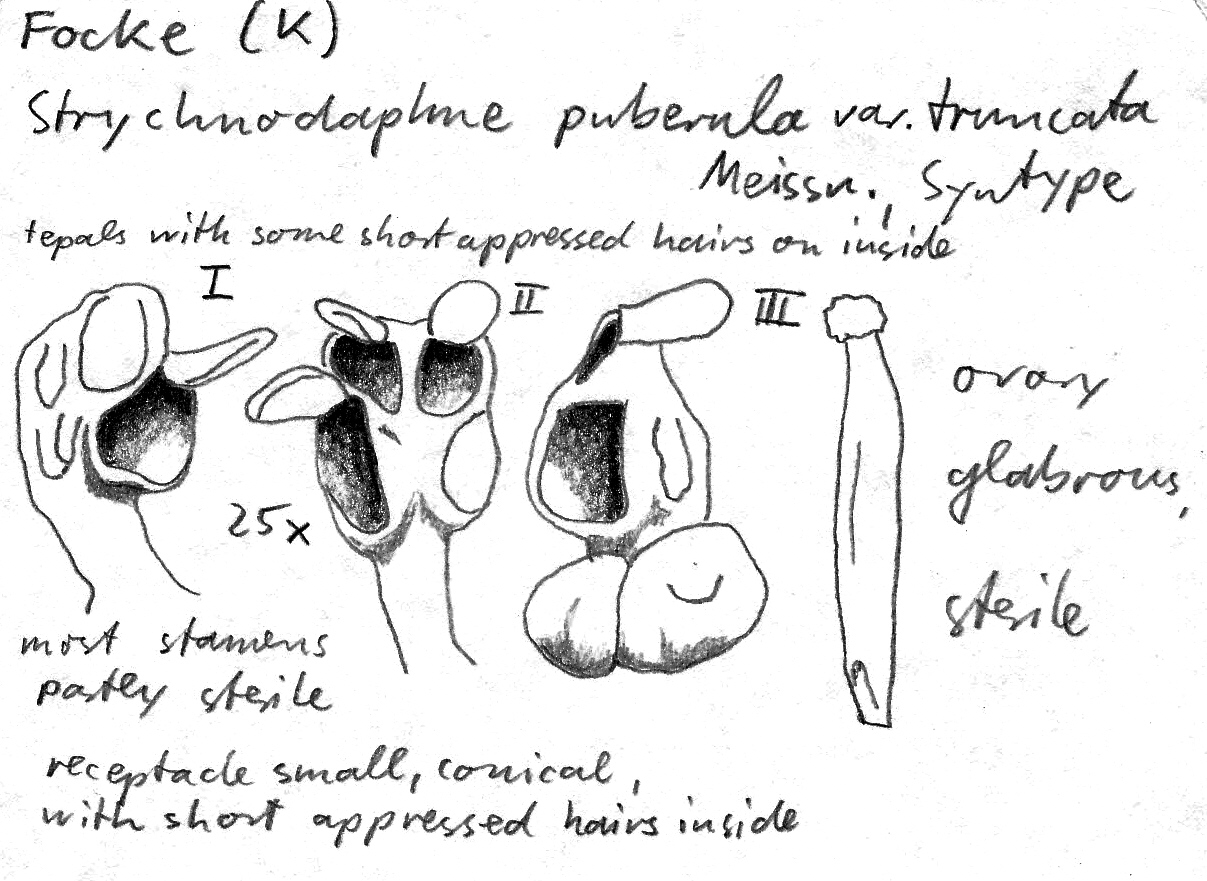 Focke (K)
Strychnodaphne puberula var. truncata
Meissn., Syntype
tepals with some short appressed hairs on inside
I
II
III
25x
ovary
glabrous,
sterile
most stamens
partly sterile
receptacle small, conical,
with short appressed hairs inside